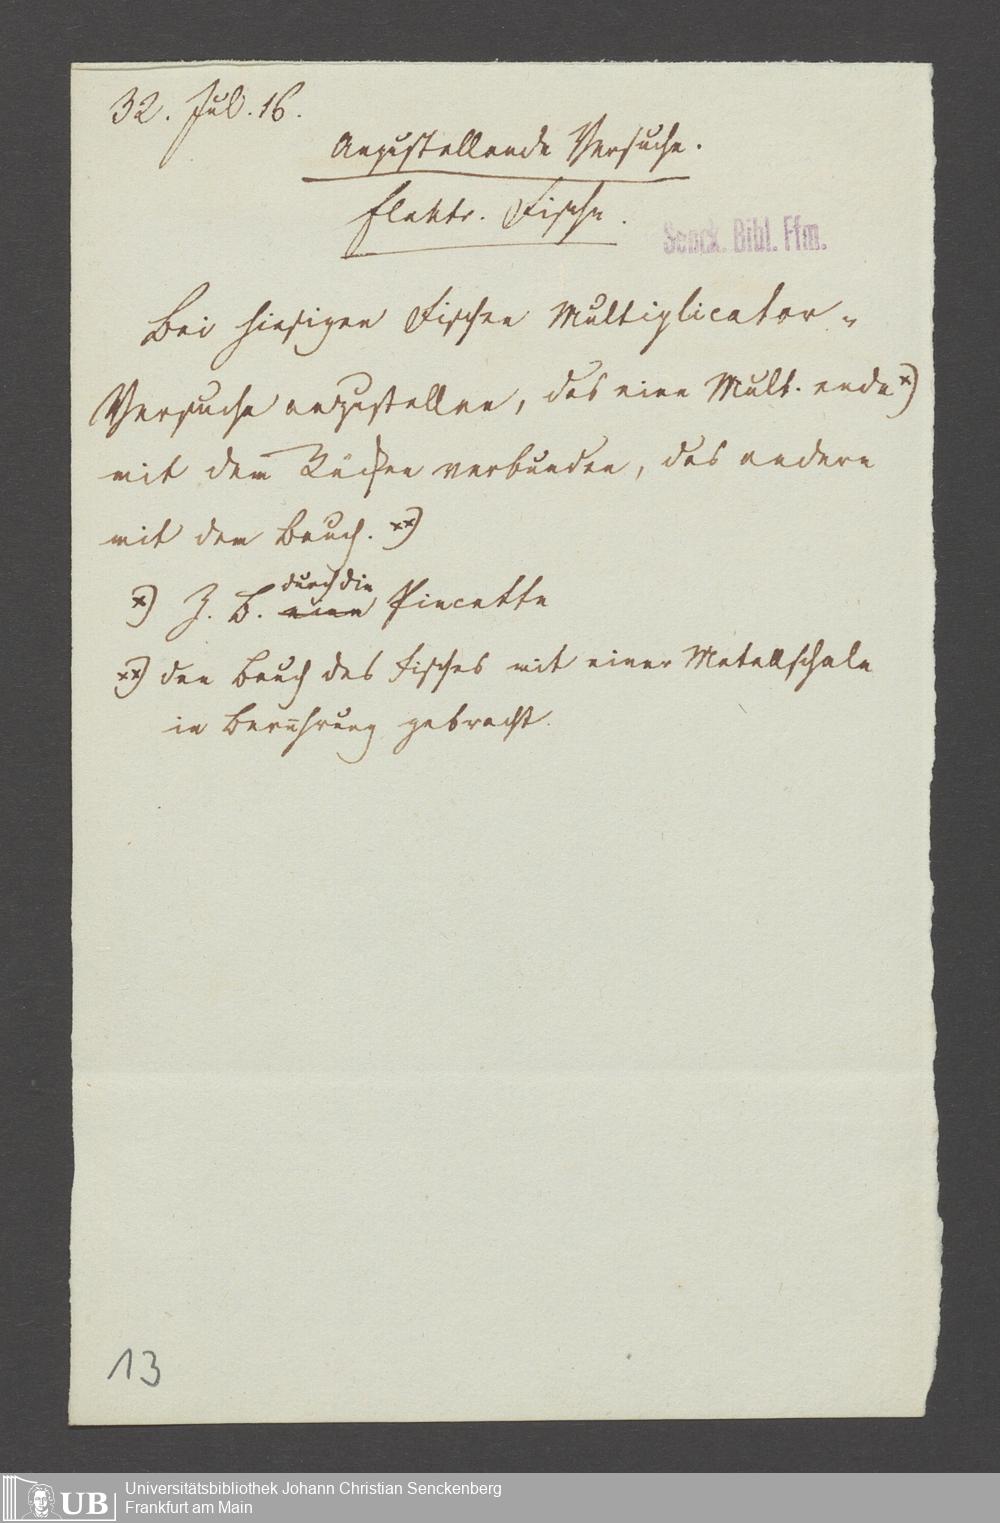 32. Jul. 16.
Anzustellende Versuche.
Elektr. Fische.
Senck. Bibl. Ffm.
Bei hiesigen Fischen Multiplicator-
Versuche anzustellen, das eine Mult. ende *)
mit dem Rücken verbunden, das andere
mit dem Bauch. **)
durch die
*) Z. B. eine Pincette
**) den Bauch des Fisches mit einer Metallschale
in Berührung gebracht.
13
UB
Universitätsbibliothek Johann Christian Senckenberg
Frankfurt am Main